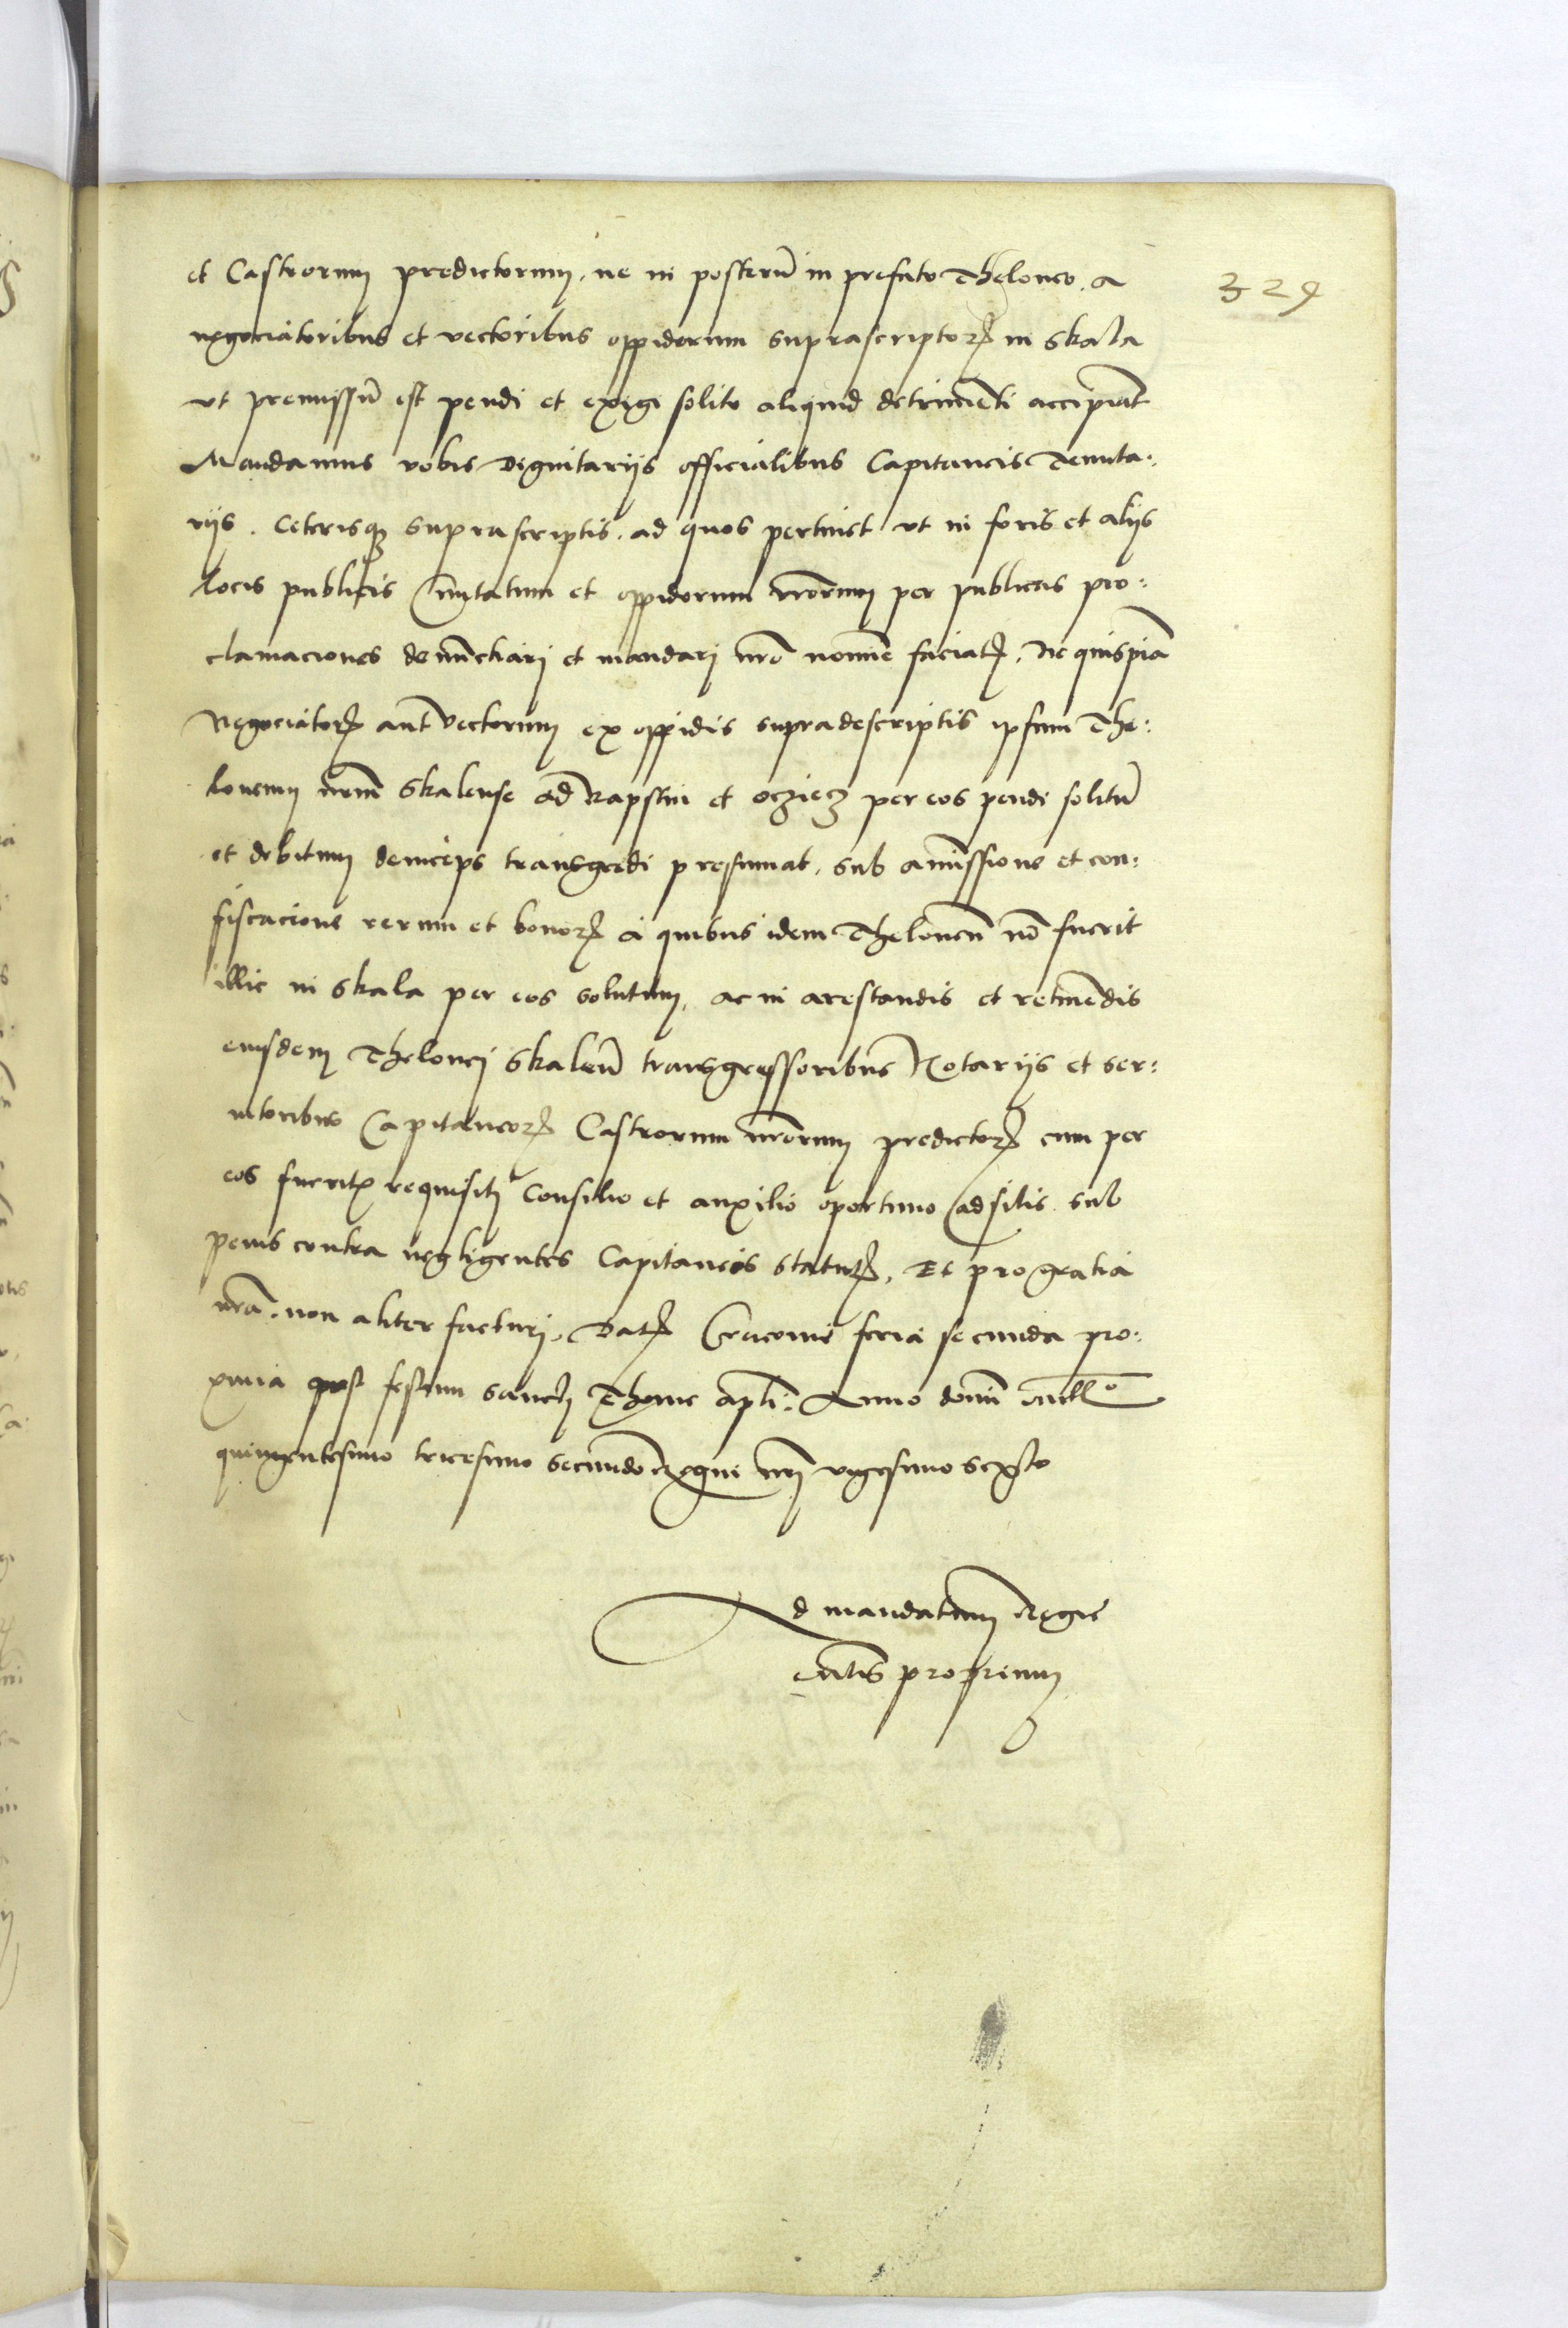 et Castrorum predictorum, ne in posterū in prefato Theloneo, a
329
negociatoribus et vectoribus oppidorum suprascriptoꝝ in Skala
vt premissū est pendi et exigi solito aliquid detrimēti accipiāt
Mandamus vobis Dignitarijs officialibus Capitaneis Tenuta:
rijs. Ceterisqꝫ suprascriptis, ad quos pertinet vt in foris et alijs
locis publicis Ciuitatum et oppidorum nr̄orum per publicas pro:
clamaciones denūctiari et mandari nr̄o nomine faciatꝭ, Ne quispiā
Negociatoꝝ aut vectorum ex oppidis supradescriptis ipsum The:
loneum nr̄um Skalense ad Rapstin et ocziecz per eos pendi solitū
et debitum deinceps transgredi presumat, sub amissione et con:
fiscacione rerum et bonoꝝ a quibus idem Theloneū nō fuerit
illic in Skala per eos solutum, ac in arestandis et retinēdis
eiusdem Thelonej Skaleñ transgressoribus Notarijs et ser:
uitoribus Capitaneoꝝ Castrorum nr̄orum predictoꝝ cum per
eos fueritꝭ requisitj Consilio et auxilio oportuno adsitis sub
penis contra negligentes Capitaneos statutꝭ, Et pro gratia
nr̄a, non aliter facturj, Datꝭ Cracouie feria secunda pro:
xima post festum sanctj Thome apli: Anno domi Mill°
quingentesimo tricesimo secundo Regni nr̄j vigesimo sexto
Ad mandatum Regie
Mātis proprium